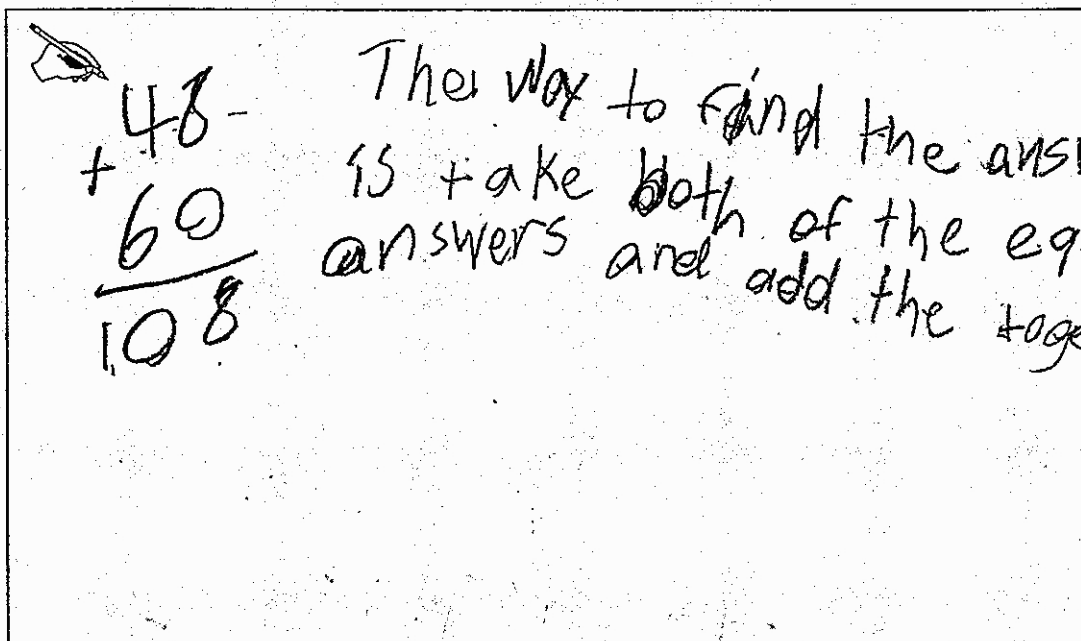 48
+
60
108
The way to find the ans
is take both of the eq
answers and add the toge